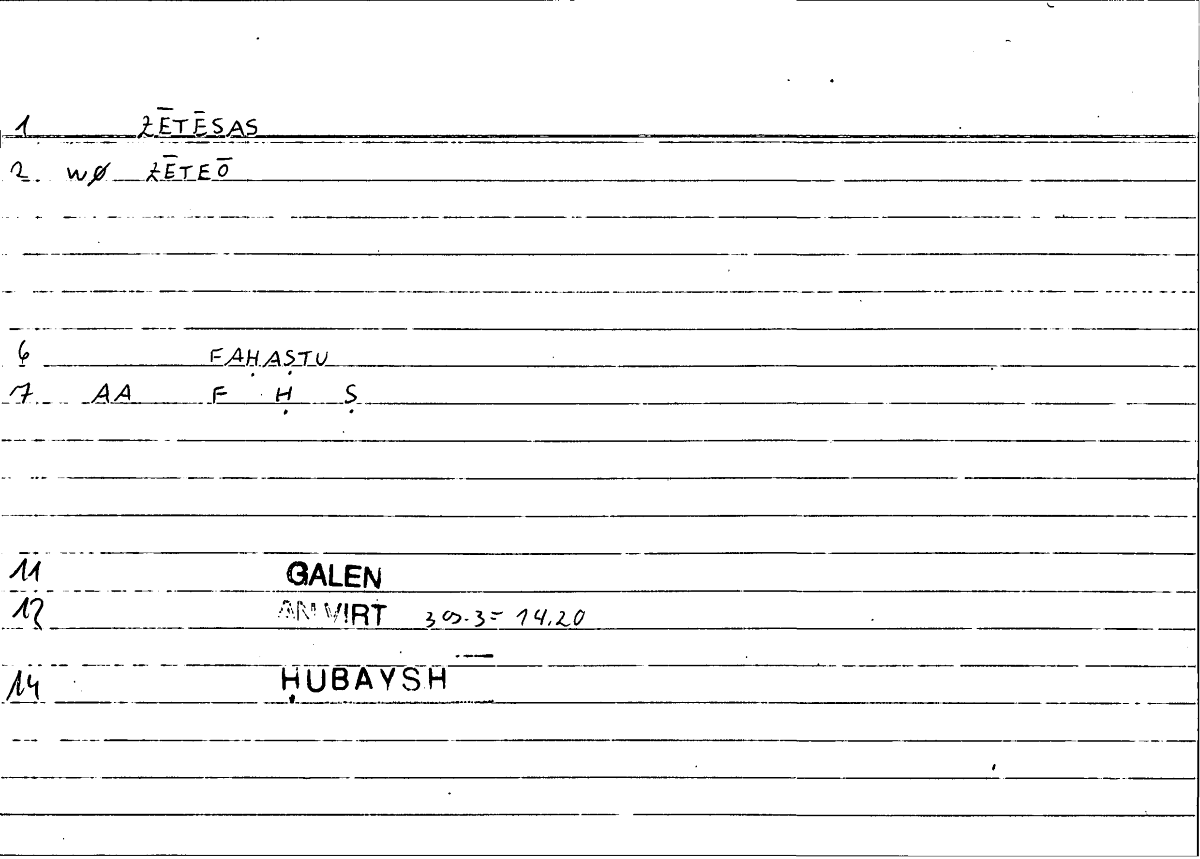 1 ZĒTĒSAS
2. WØ ZĒTEŌ
6 FAḤAṢTU
7 AA F Ḥ Ṣ
11 GALEN
12 AN VIRT 14.20
14 ḤUBAYSH